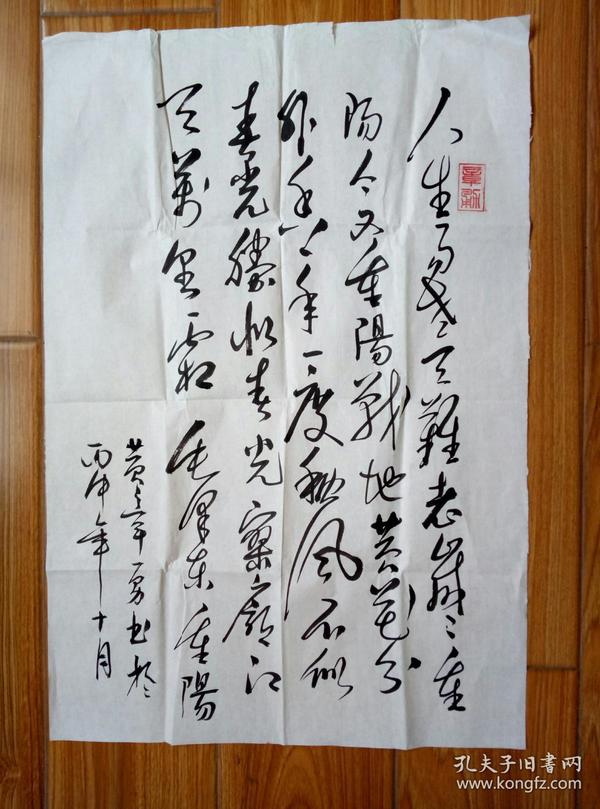 人生易老天難老歲〻重
陽今又重陽戰地黄花分
外香一年一度秋風不似
春光勝似春光寥廓江
天萬里霜 毛澤東重陽
黄 勇书於
丙申年十月
孔夫子旧書网
www.kongfz.com